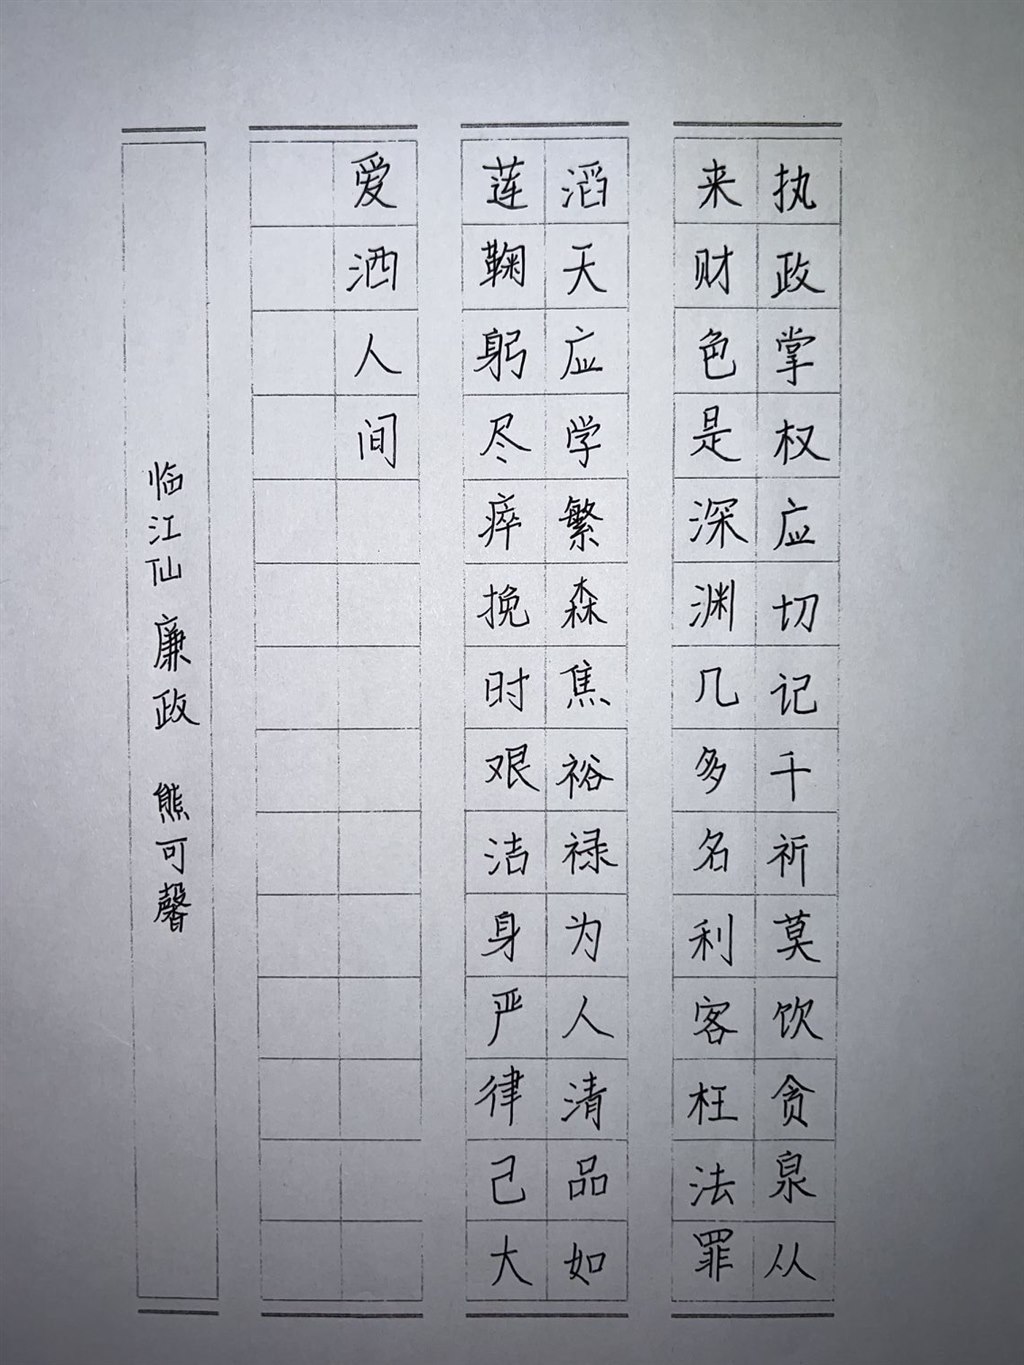 执政掌权应切记千祈莫饮贪泉从
来财色是深渊几多名利客枉法罪
滔天应学繁森焦裕禄为人清品如
莲鞠躬尽瘁挽时艰洁身严律己大
爱洒人间
临江仙 廉政 熊可馨